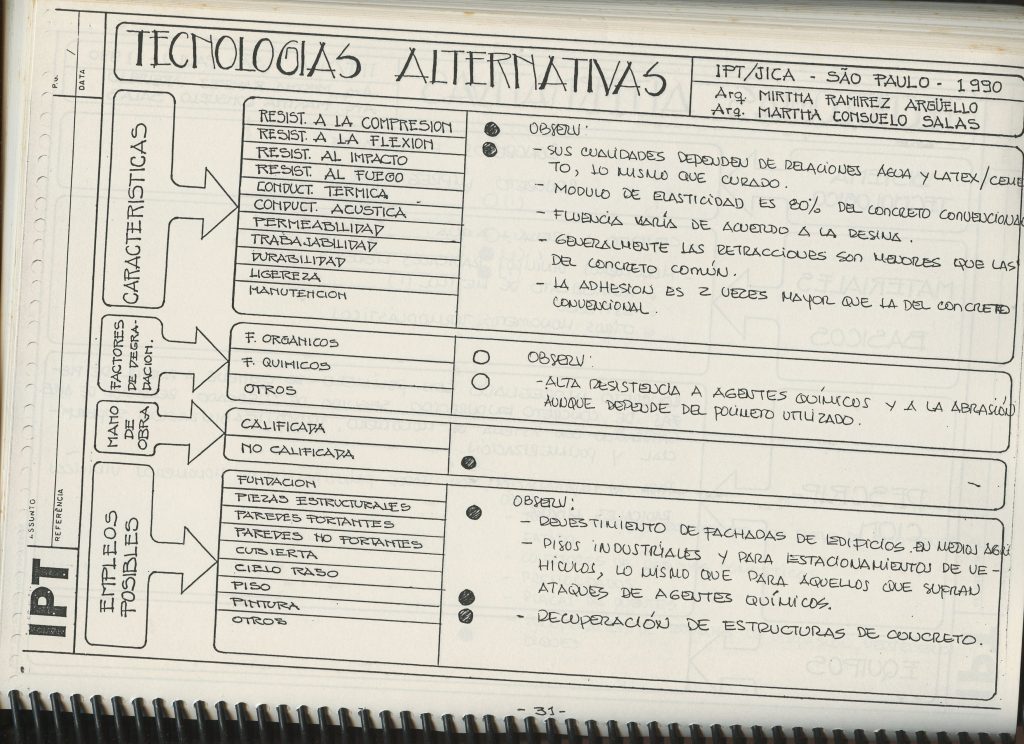 TECNOLOGIAS ALTERNATIVAS
IPT/JICA - SÃO PAULO - 1990
Arq. MIRTHA RAMIREZ ARGÜELLO
Arq. MARTHA CONSUELO SALAS
P.U.
DATA
CARACTERISTICAS
RESIST. A LA COMPRESION
RESIST. A LA FLEXION
RESIST. AL IMPACTO
RESIST. AL FUEGO
CONDUCT. TERMICA
CONDUCT. ACUSTICA
PERMEABILIDAD
TRABAJABILIDAD
DURABILIDAD
LIGEREZA
MANUTENCION
OBSERV:
- SUS CUALIDADES DEPENDEN DE RELACIONES AGUA Y LATEX/CEMEN
TO, LO MISMO QUE CURADO.
- MODULO DE ELASTICIDAD ES 80% DEL CONCRETO CONVENCIONAL
- FLUENCIA VARÍA DE ACUERDO A LA RESINA.
- GENERALMENTE LAS RETRACCIONES SON MENORES QUE LAS
DEL CONCRETO COMÚN.
- LA ADHESION ES 2 VEZES MAYOR QUE LA DEL CONCRETO
CONVENCIONAL.
FACTORES
DE DEGRA-
DACION.
F. ORGANICOS
F. QUIMICOS
OTROS
OBSERV:
- ALTA RESISTENCIA A AGENTES QUÍMICOS Y A LA ABRASIÓN
AUNQUE DEPENDE DEL POLÍMERO UTILIZADO.
MANO
DE
OBRA
CALIFICADA
NO CALIFICADA
EMPLEOS
POSIBLES
FUNDACION
PIEZAS ESTRUCTURALES
PAREDES PORTANTES
PAREDES NO PORTANTES
CUBIERTA
CIELO RASO
PISO
PINTURA
OTROS
OBSERV:
- REVESTIMIENTO DE FACHADAS DE EDIFICIOS EN MEDIOS
- PISOS INDUSTRIALES Y PARA ESTACIONAMIENTOS DE VE-
HÍCULOS, LO MISMO QUE PARA AQUELLOS QUE SUFRAN
ATAQUES DE AGENTES QUÍMICOS.
- RECUPERACIÓN DE ESTRUCTURAS DE CONCRETO.
ASSUNTO
REFERÊNCIA
IPT
- 31 -